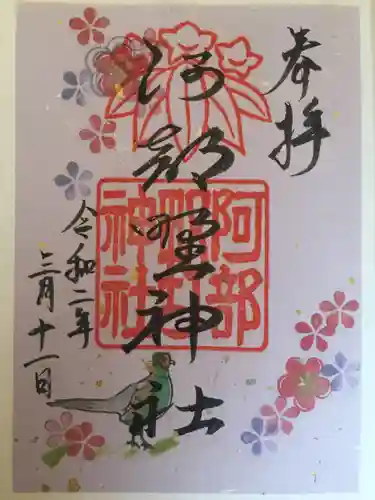 奉拝
阿部野神社
阿部
野
神社
令和二年
三月十一日